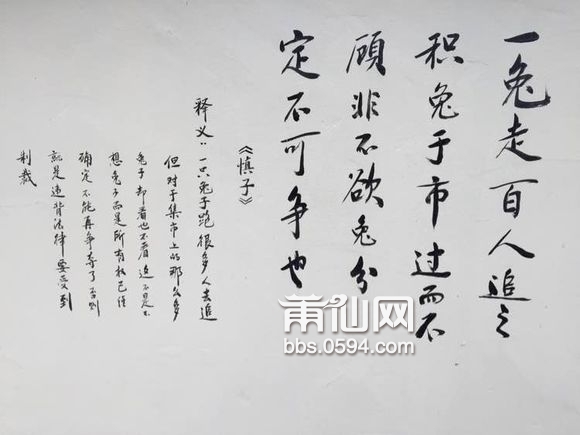 一兔走百人追之
积兔于市过而不
顾非不欲兔分
定不可争也
《慎子》
释义：一只兔子跑很多人去追
但对于集市上的那么多
兔子却看也不看这不是不
想兔子而是所有权已经
确定不能再争夺了否则
就是违背法律要受到
制裁
莆仙网
bbs.0594.com